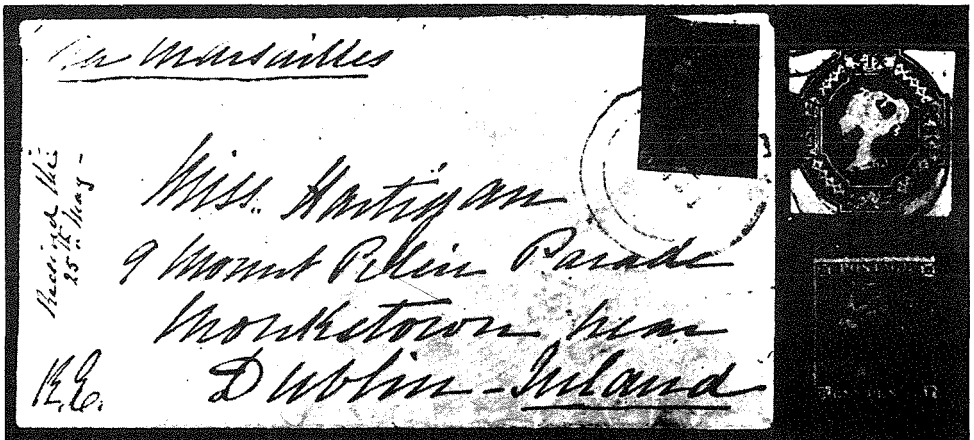 Via Marseilles
Received the
25th May -
Miss. Hartigan
9 Mount Pelier Parade
Monkstown near
Dublin - Ireland
POSTAGE